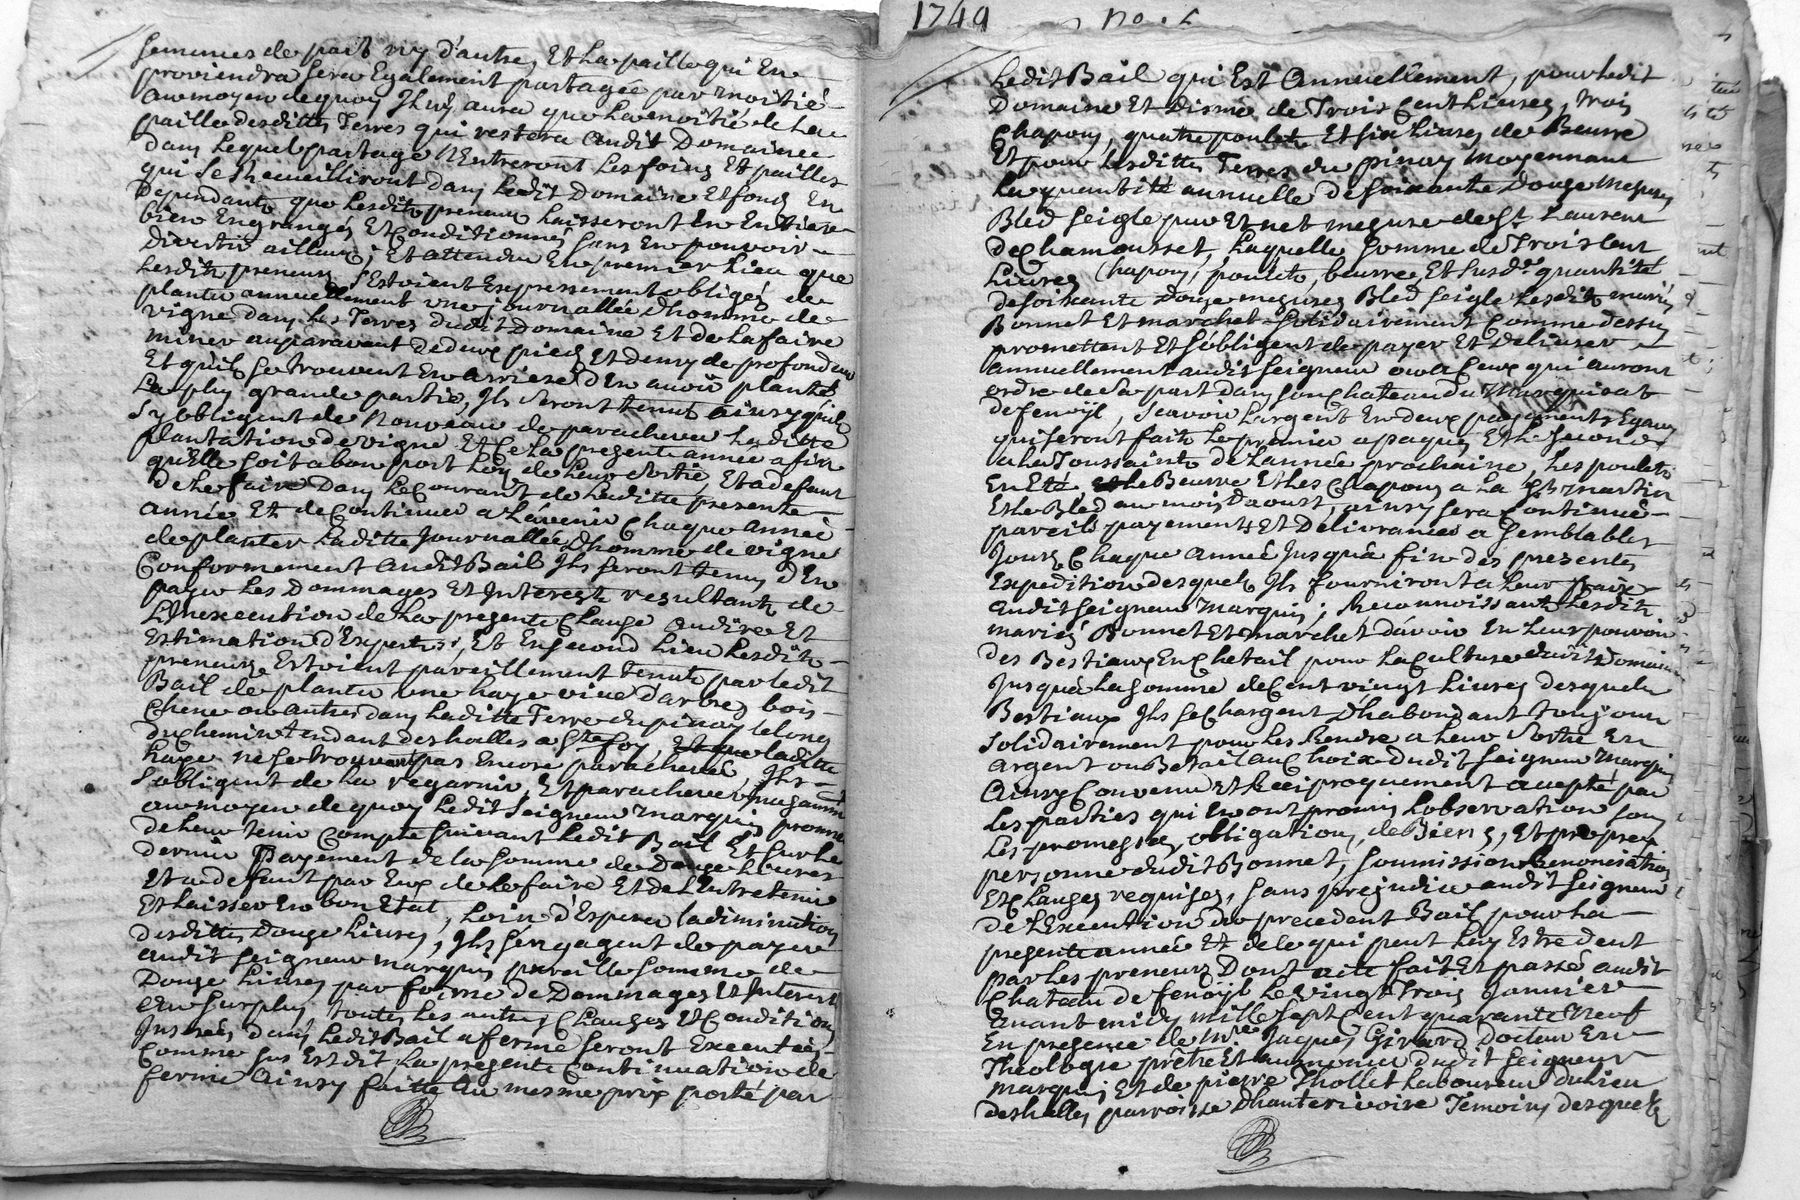 semences de part ny d'autre, Et La paille qui En
proviendra sera Egalement partagée par moitié
au moyen de quoy Il n'y aura que La moitié de La
paille desdittes Terres qui restera audit Domaine
dans Lequel partage N'Entreront Les foins Et pailles
qui Se Recueilliront dans Ledit Domaine Et fonds En
Dependants que Lesdits preneurs Laisseront En Entier
bien Engrangés Et Conditionnés sans En pouvoir
divertir ailleurs; Et attendu En premier Lieu que
Lesdits preneurs s'Estoient Expressement obligés de
planter annuellement une journallée d'homme de
vigne dans Les Terres dudit Domaine Et de La faire
miner auparavant de deux pieds Et demy de profondeur
Et qu'ils se trouvent En arriere d'En avoir planté
La plus grande partie, Ils seront tenus ainsy qu'ils
s'y obligent de Nouveau de parachever Laditte
plantation de vigne Et Ce La presente année afin
qu'Elle soit a bon port Lors de Leur sortie, Et a defaut
De Le faire Dans Le Courant de Laditte presente
année Et de Continuer a L'avenir Chaque année
de planter Laditte Journallée D'homme de vigne
Conformement audit Bail Ils seront tenus d'En
payer Les Dommages Et Interests resultants de
L'Inexecution de La presente Clause au dire Et
Estimation d'Experts; Et En second Lieu Lesdits
preneurs Estoient pareillement tenuts par Ledit
Bail de planter une haye vive d'arbres bois
Chene ou autres dans Laditte Terre du pinay le long
du Chemin tendant des halles a Ste foy, Et que laditte
haye ne se trouvant pas Encore parachevée, Ils
s'obligent de La regarnir, Et parachever
au moyen de quoy Ledit Seigneur marquis promet
de Leur tenir Compte suivant Ledit Bail Et sur Le
dernier Payement de la somme de Douze Livres
Et a defaut par Eux de Le faire Et de L'Entretenir
Et Laisser En bon Etat, Loin d'Esperer la diminution
desdittes Douze Livres, Ils s'engagent de payer
audit Seigneur marquis pareille somme de
Douze Livres par forme de Dommages Et Interests
Au surplus toutes Les autres Clauses Et Conditions
Inserées dans Ledit Bail a ferme seront Executées
Comme sus Est dit La presente Continuation de
ferme Ainsy faitte Au mesme prix porté par
1749 no.
Ledit Bail qui Est Annuellement, pour Ledit
Domaine Et disme de Trois Cent Livres, trois
Chapons, quatre poulets Et six Livres de Beurre
Et pour Lesdittes Terres du pinay moyennant
La quantité annuelle de soixante Douze mesures
Bled seigle pur Et net mesure de St Laurent
de Chamousset, Laquelle somme de Trois Cent
Livres Chapons, poulets, beurre Et susde. quantité
de soixante Douze mesures Bled seigle Lesdits mariés
Bonnet Et marchet solidairement Comme dessus
promettent Et s'obligent de payer Et Delivrer
annuellement audit Seigneur ou a Ceux qui auront
ordre de Sa part dans son Chateau du Marquisat
de fenoÿl, Scavoir L'argent En deux payements Egaux
qui seront faits Le premier a paques, Et Le Second
a La Toussaints de L'année prochaine, Les poulets
En Eté, Le Beurre Et Les Chapons a La St martin
Et Le Bled au mois Daoust, ainsy sera Continué
pareils payements Et Delivrances a semblables
Jours Chaque année Jusqu'a fin des presentes
Expedition desquels Ils fourniront a Leur frais
audit Seigneur marquis; Reconnoissants Lesdits
mariés Bonnet Et marchet d'avoir En Leur pouvoir
des Bestiaux En Chetail pour La Culture dudit Domaine
Jusqu'a La somme de Cent vingt Livres desquels
Bestiaux Ils se Chargent D'habondant toujours
solidairement pour Les Rendre a Leur sortie En
argent ou Betail au Choix dudit Seigneur Marquis
Ainsy Convenu Et Reciproquement accepté par
Les parties qui En ont promis L'observation sous
Les promesses, obligations, de Biens, Et propres
personne dudit Bonnet, soumission Renonciation
Et Clauses requises, sans prejudice audit Seigneur
de L'Execution du precedent Bail pour La
presente année Et de Ce qui peut Luy Estre deut
par Les preneurs Dont acte fait Et passé audit
Chateau de fenoÿl Le vingt trois Janvier
Avant midy mille sept Cent quarante Neuf
En presence de Mre Jaques Girard Docteur En
Theologie prêtre Et aumonier dudit Seigneur
marquis Et de pierre Thollet Laboureur du Lieu
des halles parroisse D'hauterivoire Temoins desquels